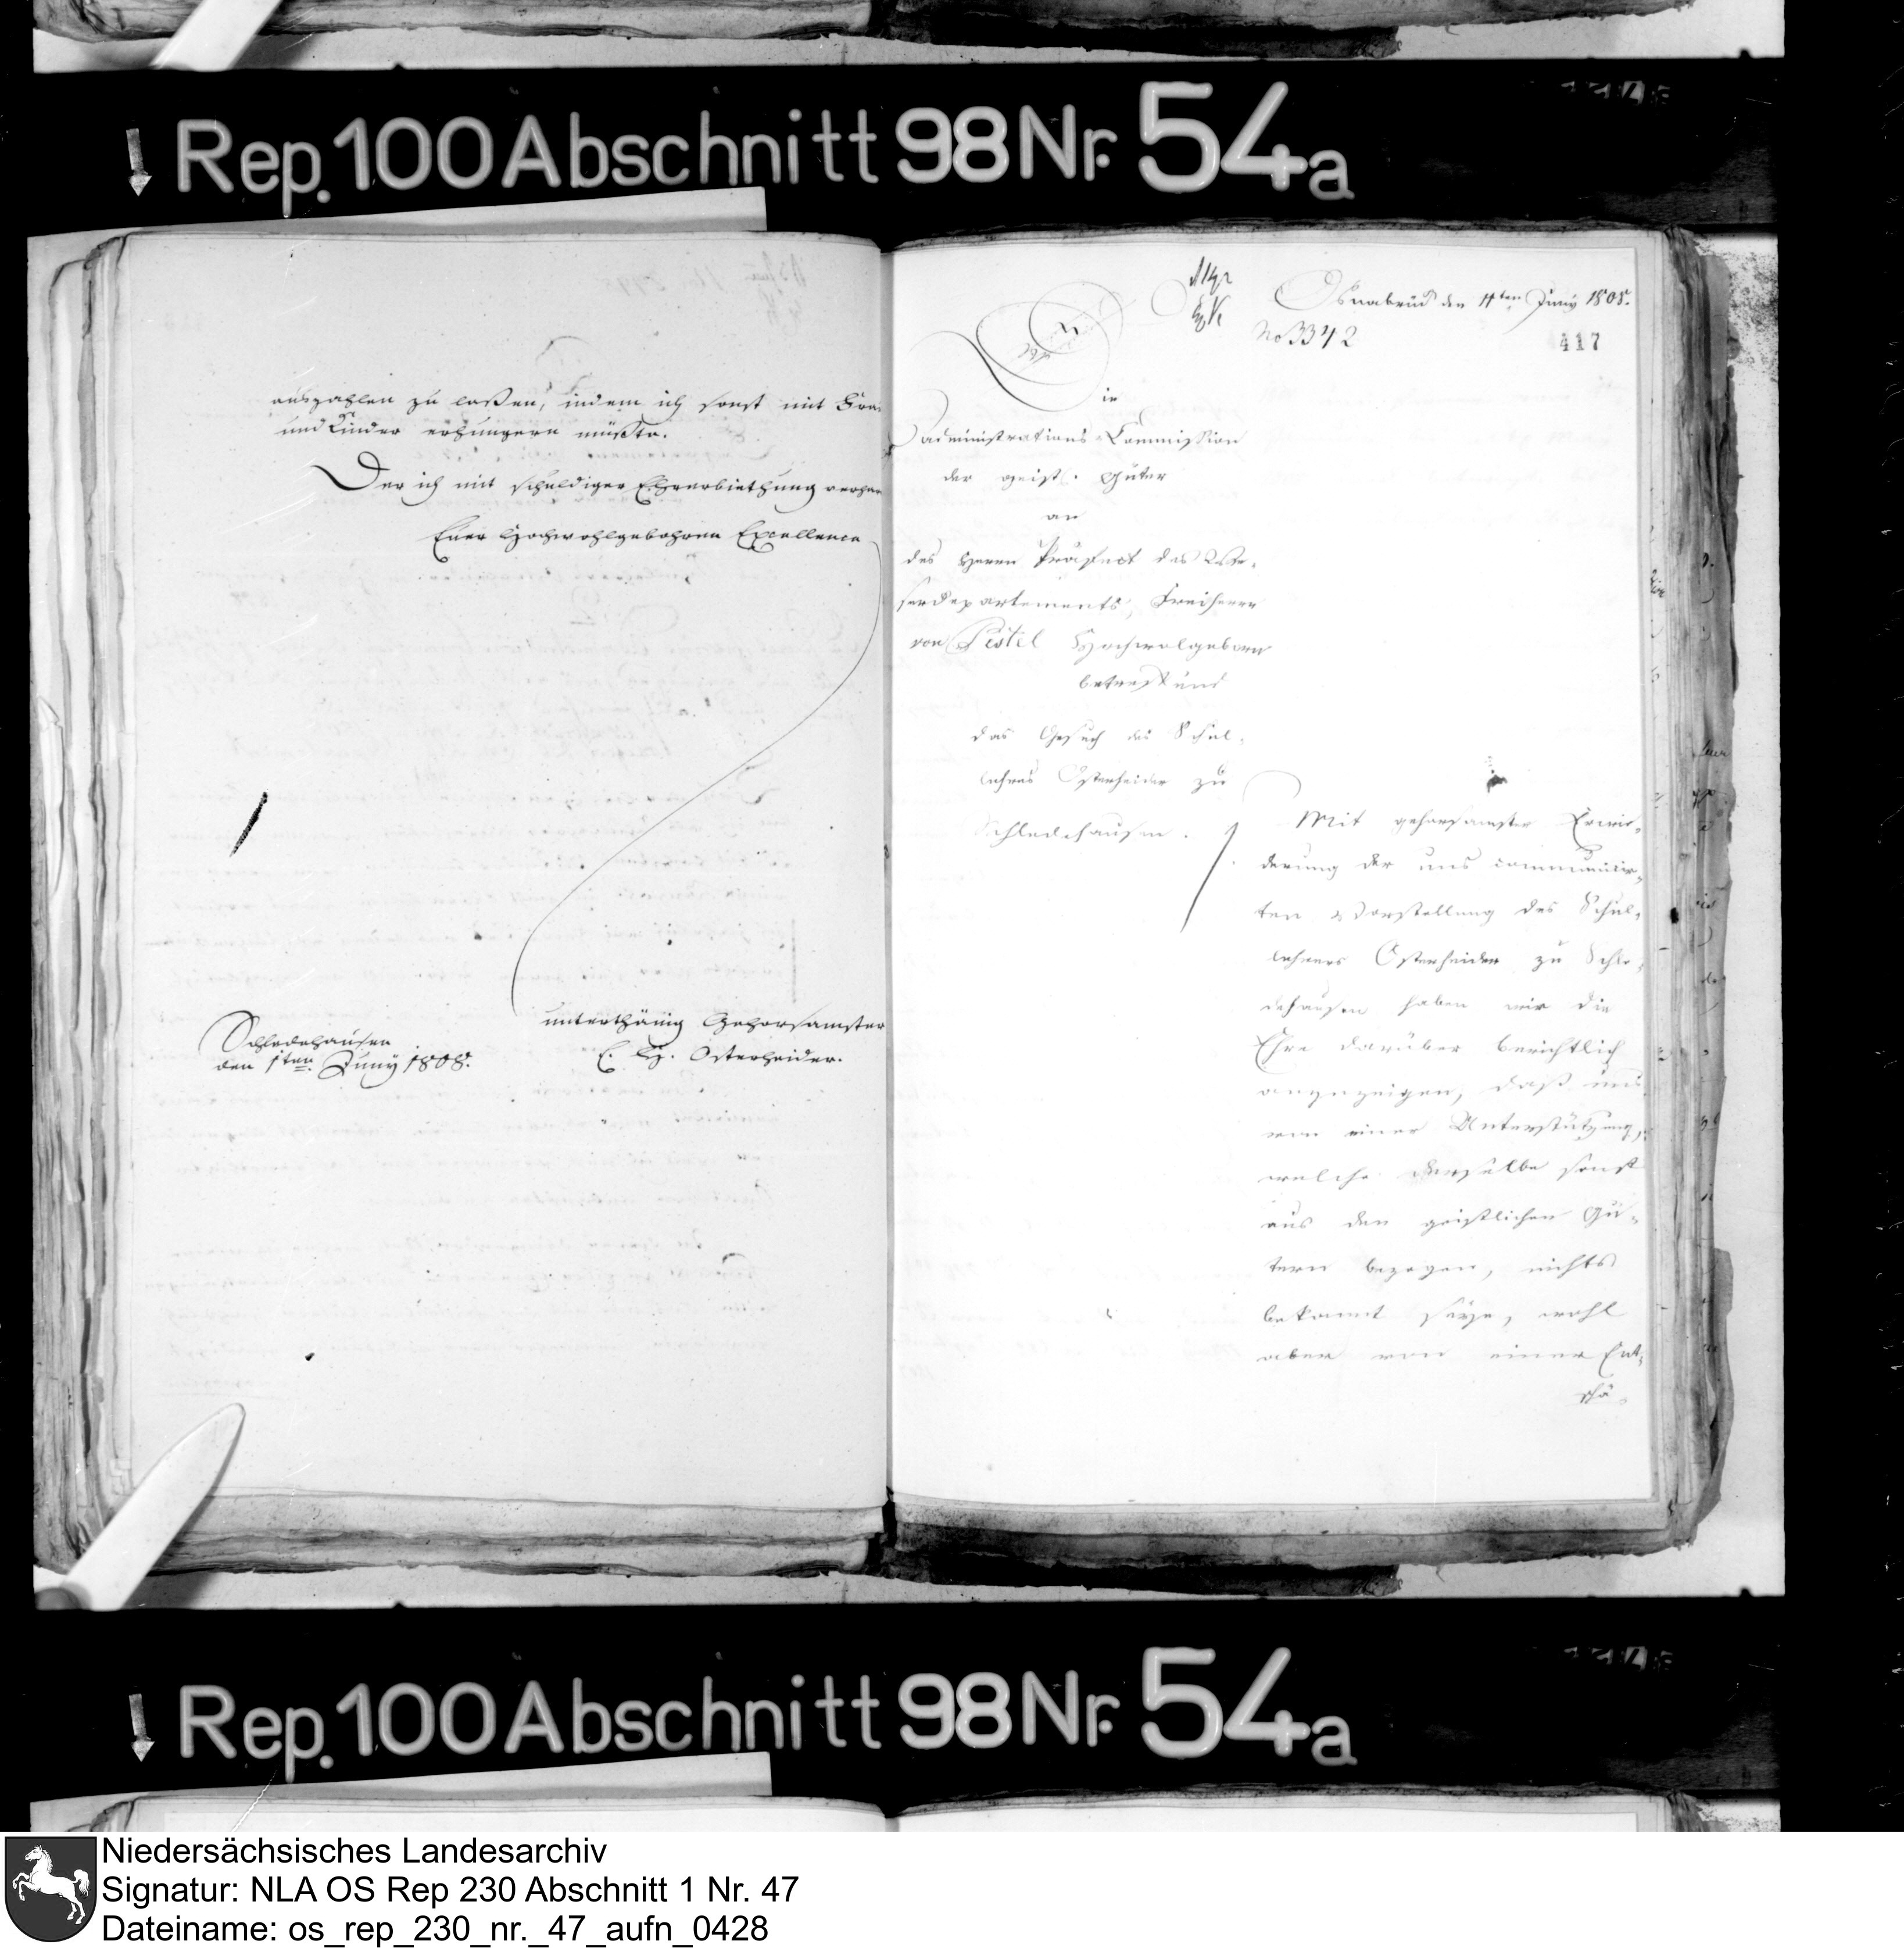 Rep. 100 Abschnitt 98 Nr. 54a
auszahlen zu laßen, indem ich sonst mit Frau
und Kinder erhungern müßte.
Der ich mit schuldiger Ehrerbiethung verhar
Euer Hochwohlgebohren Excellence
unterthänig Gehorsamster
E. H. Osterheider.
Schledehausen
den 1ten Juny 1808.
Osnabrück den 11ten Juny 1808.
No 3342
417
Die
Administrations-Commission
der geistl. Güter
an
des Herrn Präfect des We-
serdepartements, Freiherrn
von Pestel Hochwolgeborn
betreffend
das Gesuch des Schul-
lehrers Osterheider zu
Schledehausen.
Mit gehorsamster Erwie-
derung der uns communicir-
ten Vorstellung des Schul-
lehrers Osterheider zu Schle-
dehausen haben wir die
Ehre darüber berichtlich
anzuzeigen, daß uns
von einer Unterstützung,
welche derselbe sonst
aus den geistlichen Gü-
tern bezogen, nichts
bekannt seye, wohl
aber von einer Ent-
schä-
Rep. 100 Abschnitt 98 Nr. 54a
Niedersächsisches Landesarchiv
Signatur: NLA OS Rep 230 Abschnitt 1 Nr. 47
Dateiname: os_rep_230_nr._47_aufn_0428